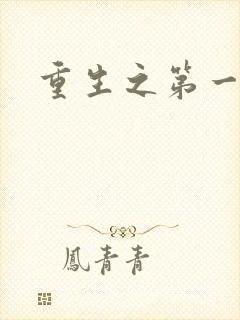 重生之第一
鳳青青